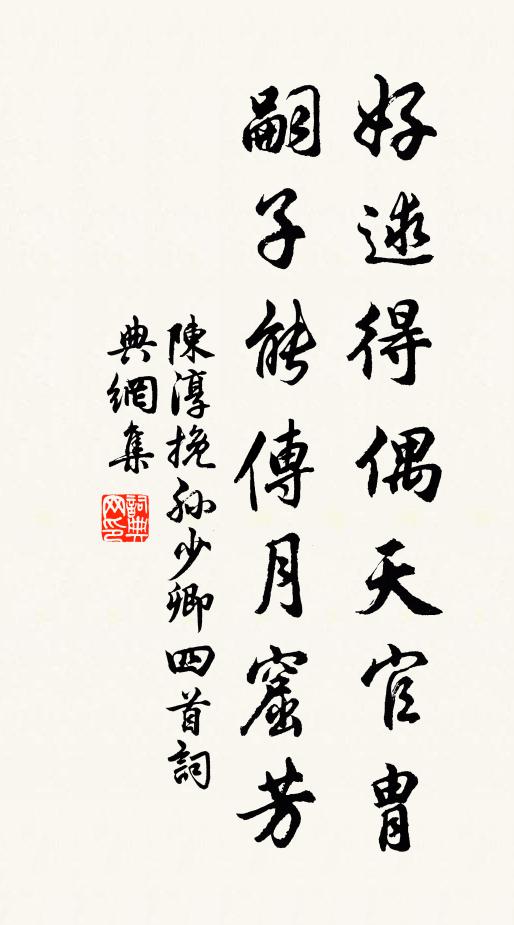 好逑得偶天官胄
嗣子能傳月窟芳
陳淳挽孫少卿四首詞
典網集
詞典網印